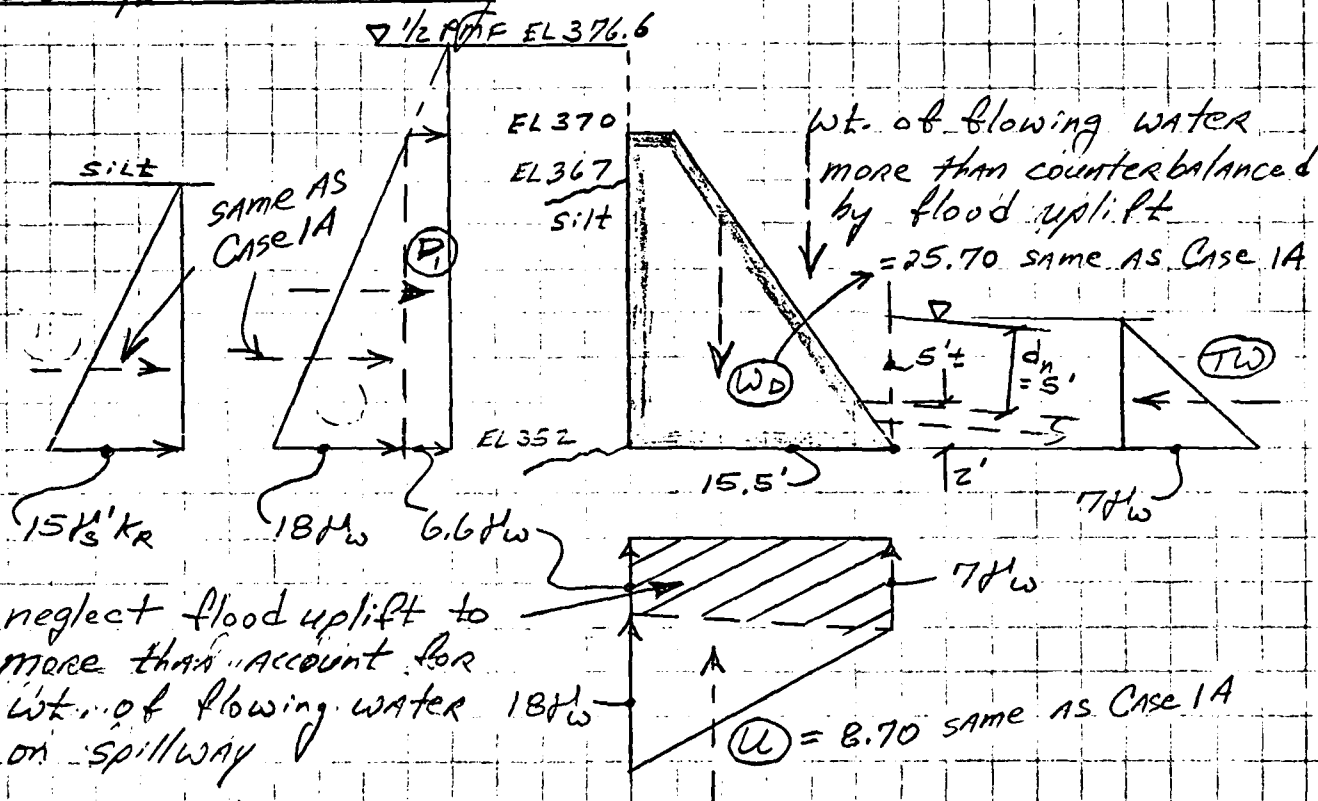 ▽ 1/2 PMF EL 376.6
EL 370
EL 367
silt
silt
SAME AS
CASE 1A
P₁
wt. of flowing water
more than counterbalanced
by flood uplift
= 25.70 SAME AS CASE 1A
W_D
▽
5'±
d_n
= 5'
TW
EL 352
15.5'
2'
7γ_w
15γ_s'K_R
18γ_w
6.6γ_w
7γ_w
neglect flood uplift to
more than account for
wt. of flowing water
on spillway
18γ_w
U = 8.70 SAME AS CASE 1A